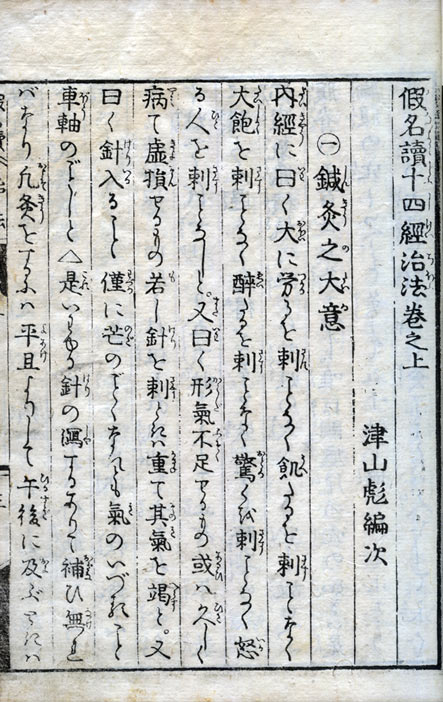 假名讀十四經治法卷之上
津山彪編次
㊀鍼灸之大意
内經に曰く大に労るを刺ことなく飢たるを刺ことなく
大飽を刺ことなく醉たるを刺ことなく驚くを刺ことなく怒
る人を刺ことなしと。又曰く形氣不足するもの或ハ久しく
病て虚損するもの若し針を刺ときハ重て其氣を竭と。又
曰く針入ること僅に芒のごとくなれども氣のいづること
車軸のごとしと△是いはゆる針の瀉するありて補ひ無れ
バなり凢灸をするハ平旦よりして午後に及ぶときハ